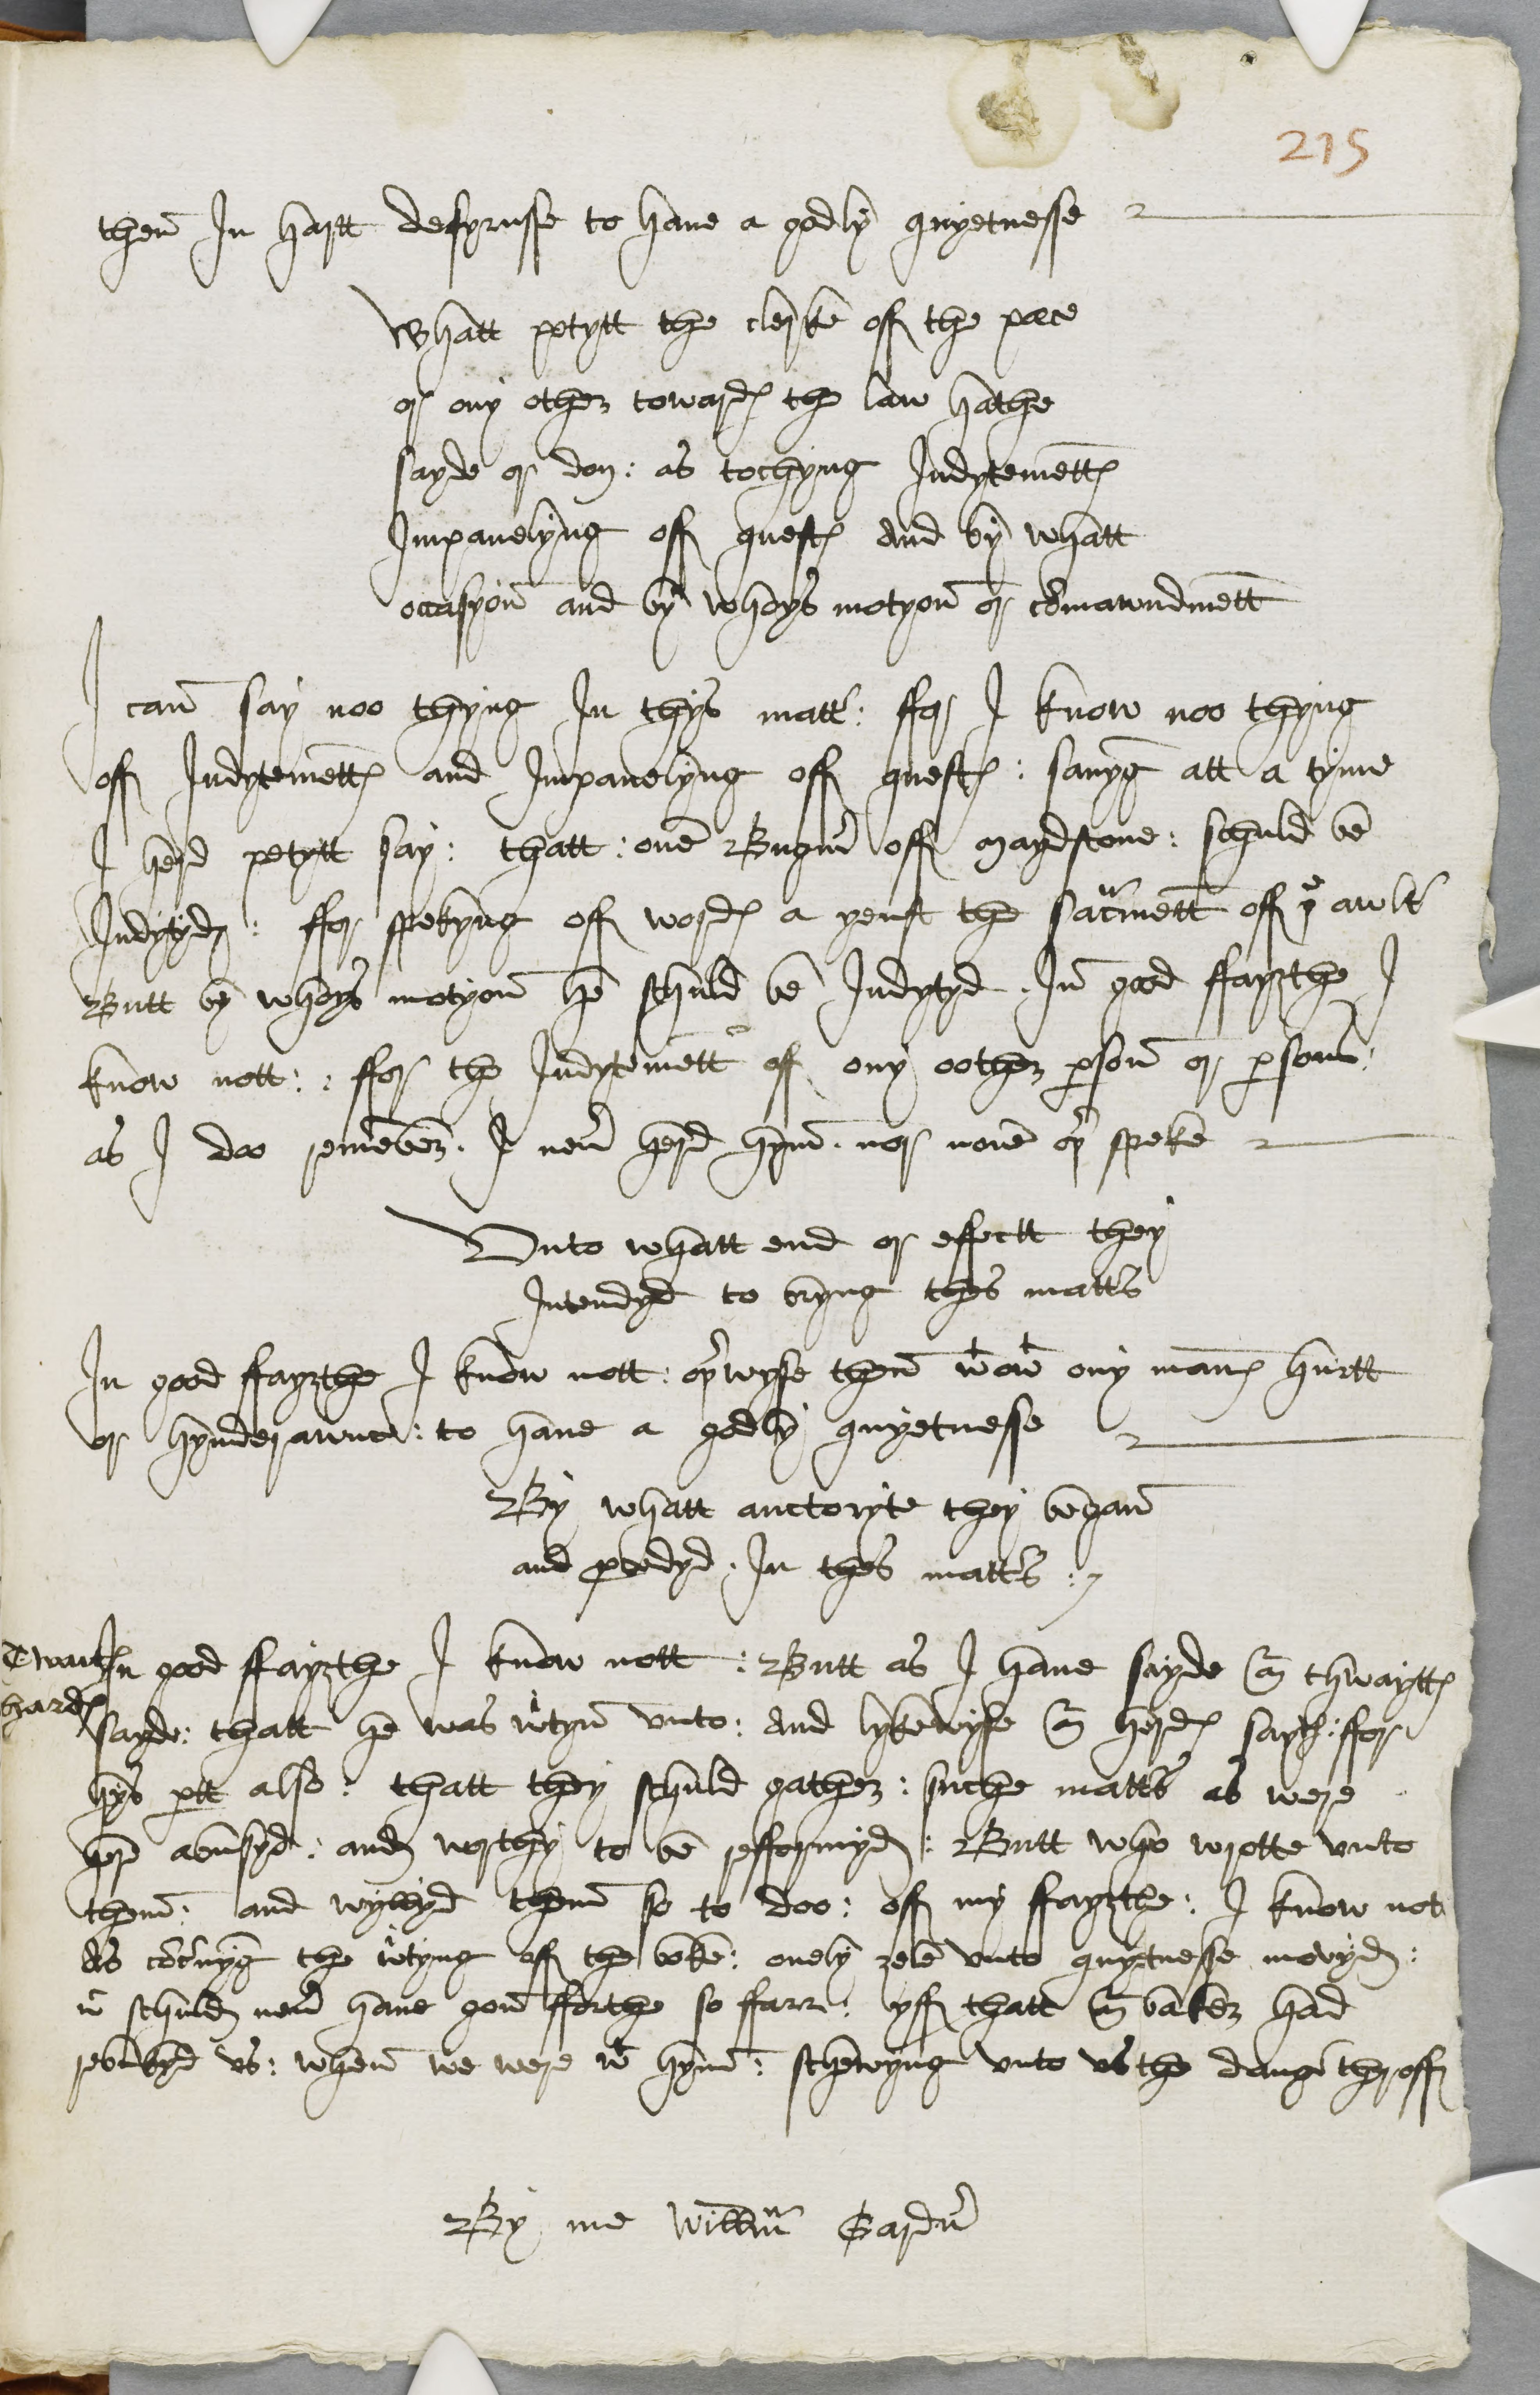 215
then In hartt desyrusse to have a godly quyetnesse
Whatt petytt the clerke off the pece
or ony other towards the law hathe
sayde or don: as tochyng Indytementts
Impanelyng off quests And by whatt
occasyon and by whoys motyon or comawndmett
I can say noo thyng In thys matt': ffor I know noo thyng
off Indytemetts and Impanelyng off quests: savyg att a tyme
I herd petytt say: thatt: one Bugn' off maydstone: schuld be
Indytyd: ffor spekyng off words a yenst the sacmett off ye awlt'
Butt by whoys motyon he schuld be Indytyd. In good ffayrthe I
know nott: ffor the Indytemett off ony oother pson or psons:
as I doo remeber. I nev' herd hym. nor none oy' speke
Unto whatt end or effectt they
Intendyd to bryng thes matt's
In good ffayrthe I know nott: oy'wyse then wtowt ony mans hurtt
or hynderawnce: to have a godly quyetnesse
By whatt auctoryte they began
and pcedyd. In thes matt's:
Twaits
hards
In good ffayrthe I know nott: Butt as I have sayde Mr thwaytts
sayde: thatt he was wrtyn unto: And lykewyse Mr herds sayth: ffor
hys ptt also: thatt they schuld gather: suche matt's as were
her abusyd: and worthy to be refformyd: Butt who wrotte unto
them: and wyllyd them so to doo: off my ffayrthe: I know not
As co'c'nyg the wrtyng off the boke: onely zele unto quyetnesse movyd:
w schuld nev' have gon fforthe so ffarr: yff thatt Mr baker had
rebukyd us: when we were wt hym: schewyng unto us the dang' theroff
By me Willm Gardn'